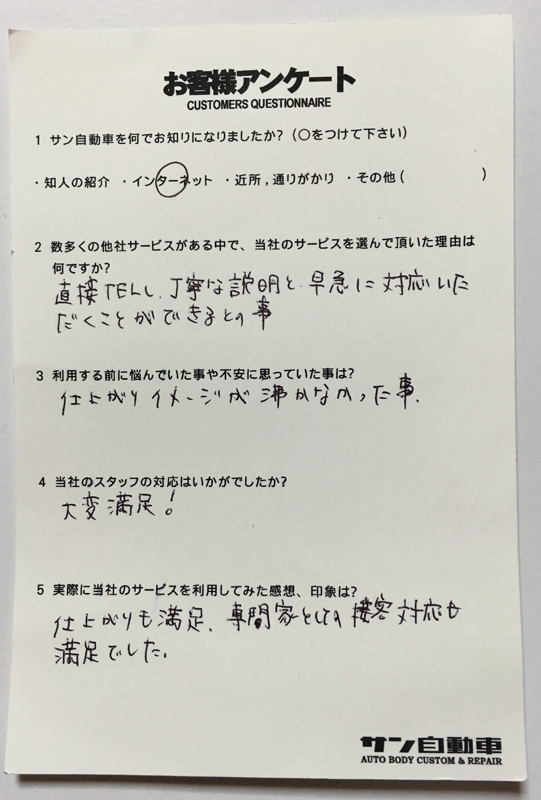 お客様アンケート
CUSTOMERS QUESTIONNAIRE
1 サン自動車を何でお知りになりましたか?(○をつけて下さい)
・知人の紹介 ・インターネット ・近所,通りがかり ・その他( )
2 数多くの他社サービスがある中で、当社のサービスを選んで頂いた理由は
何ですか?
直接TELし、丁寧な説明と、早急に対応いた
だくことができるとの事
3 利用する前に悩んでいた事や不安に思っていた事は?
仕上がりイメージが沸かなかった事、
4 当社のスタッフの対応はいかがでしたか?
大変満足!
5 実際に当社のサービスを利用してみた感想、印象は?
仕上がりも満足、専門家としての接客対応も
満足でした。
サン自動車
AUTO BODY CUSTOM & REPAIR